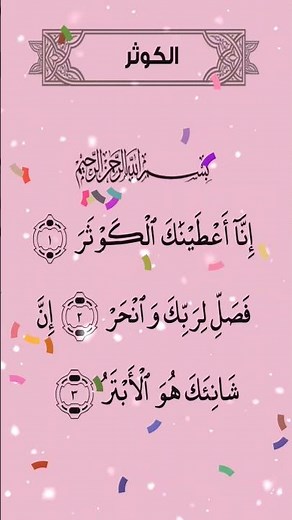 الكوثر
بِسْمِ اللَّهِ الرَّحْمَٰنِ الرَّحِيمِ
إِنَّآ أَعْطَيْنَٰكَ ٱلْكَوْثَرَ ١
فَصَلِّ لِرَبِّكَ وَٱنْحَرْ ٢ إِنَّ
شَانِئَكَ هُوَ ٱلْأَبْتَرُ ٣